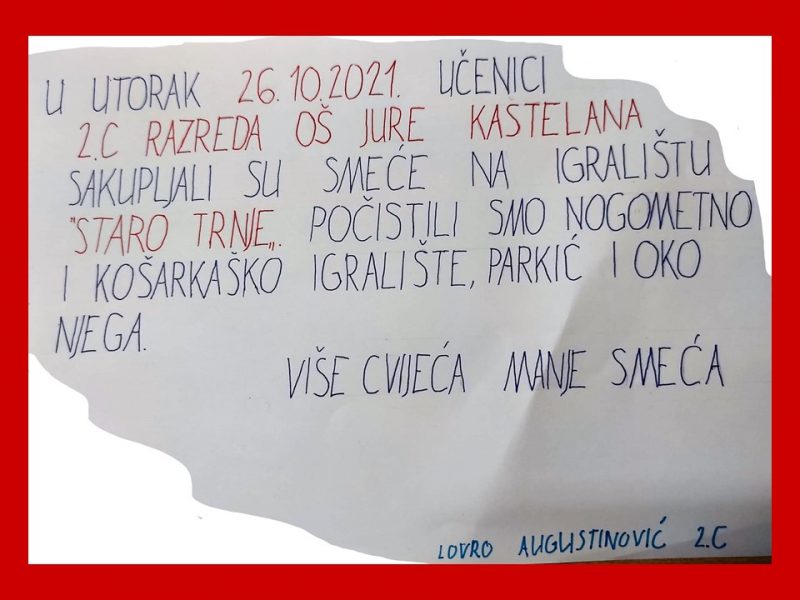 U UTORAK 26.10.2021. UČENICI
2.C RAZREDA OŠ JURE KASTELANA
SAKUPLJALI SU SMEĆE NA IGRALIŠTU
"STARO TRNJE„. POČISTILI SMO NOGOMETNO
I KOŠARKAŠKO IGRALIŠTE, PARKIĆ I OKO
NJEGA.
VIŠE CVIJEĆA MANJE SMEĆA
LOVRO AUGUSTINOVIĆ 2.C